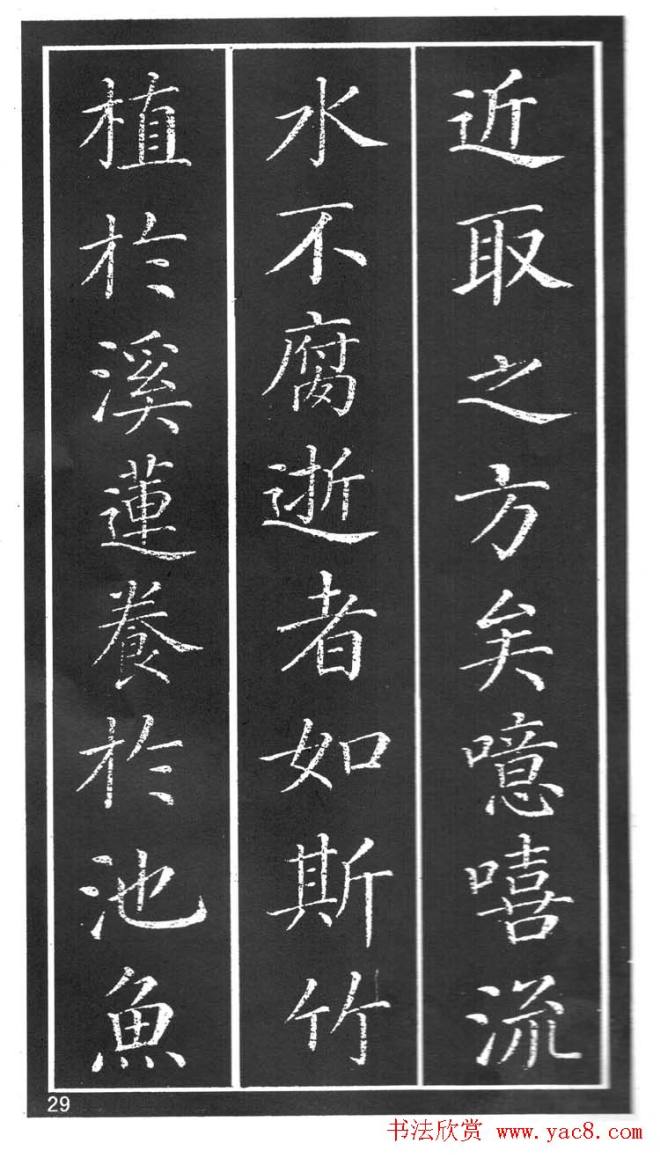 近取之方矣噫嘻流
水不腐逝者如斯竹
植於溪蓮養於池魚
29
书法欣赏 www.yac8.com